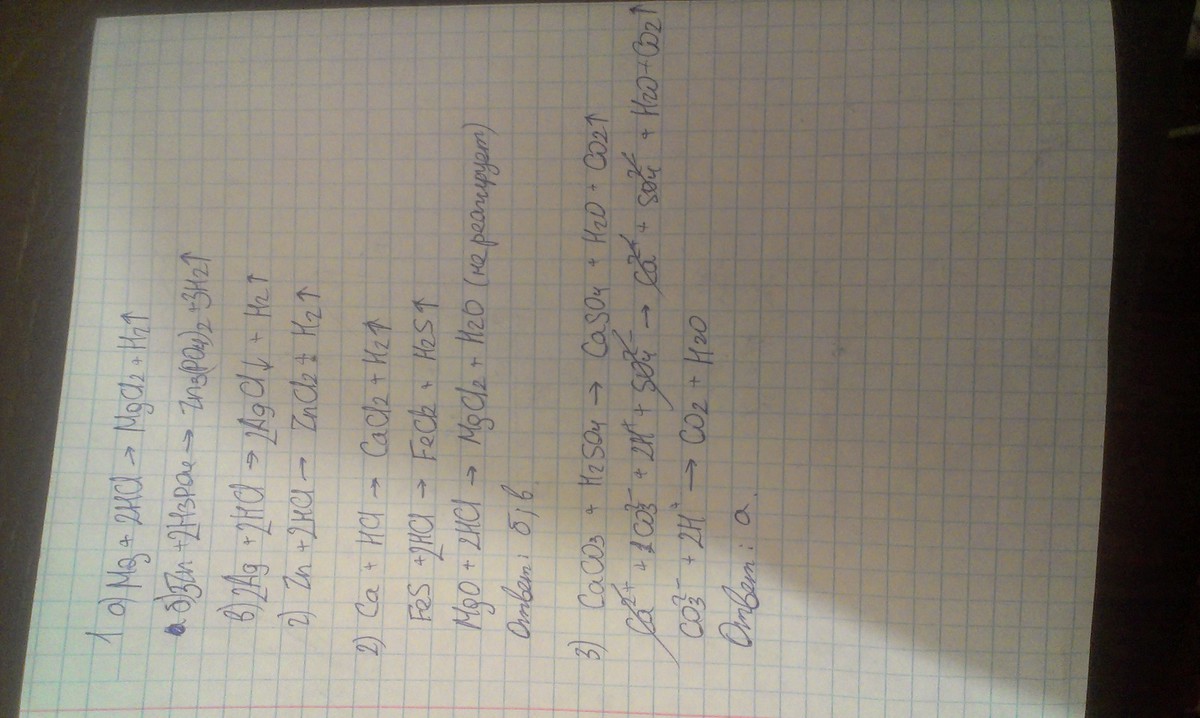 1 а) Mg + 2HCl → MgCl2 + H2↑
б) 3Zn + 2H3PO4 → Zn3(PO4)2 + 3H2↑
в) 2Ag + 2HCl → 2AgCl↓ + H2↑
г) Zn + 2HCl → ZnCl2 + H2↑
2) Ca + HCl → CaCl2 + H2↑
FeS + 2HCl → FeCl2 + H2S↑
MgO + 2HCl → MgCl2 + H2O (не реагирует)
Ответ: б, в.
3) CaCO3 + H2SO4 → CaSO4 + H2O + CO2↑
Ca²⁺ + CO3²⁻ + 2H⁺ + SO4²⁻ → Ca²⁺ + SO4²⁻ + H2O + CO2↑
CO3²⁻ + 2H⁺ → CO2 + H2O
Ответ: а.